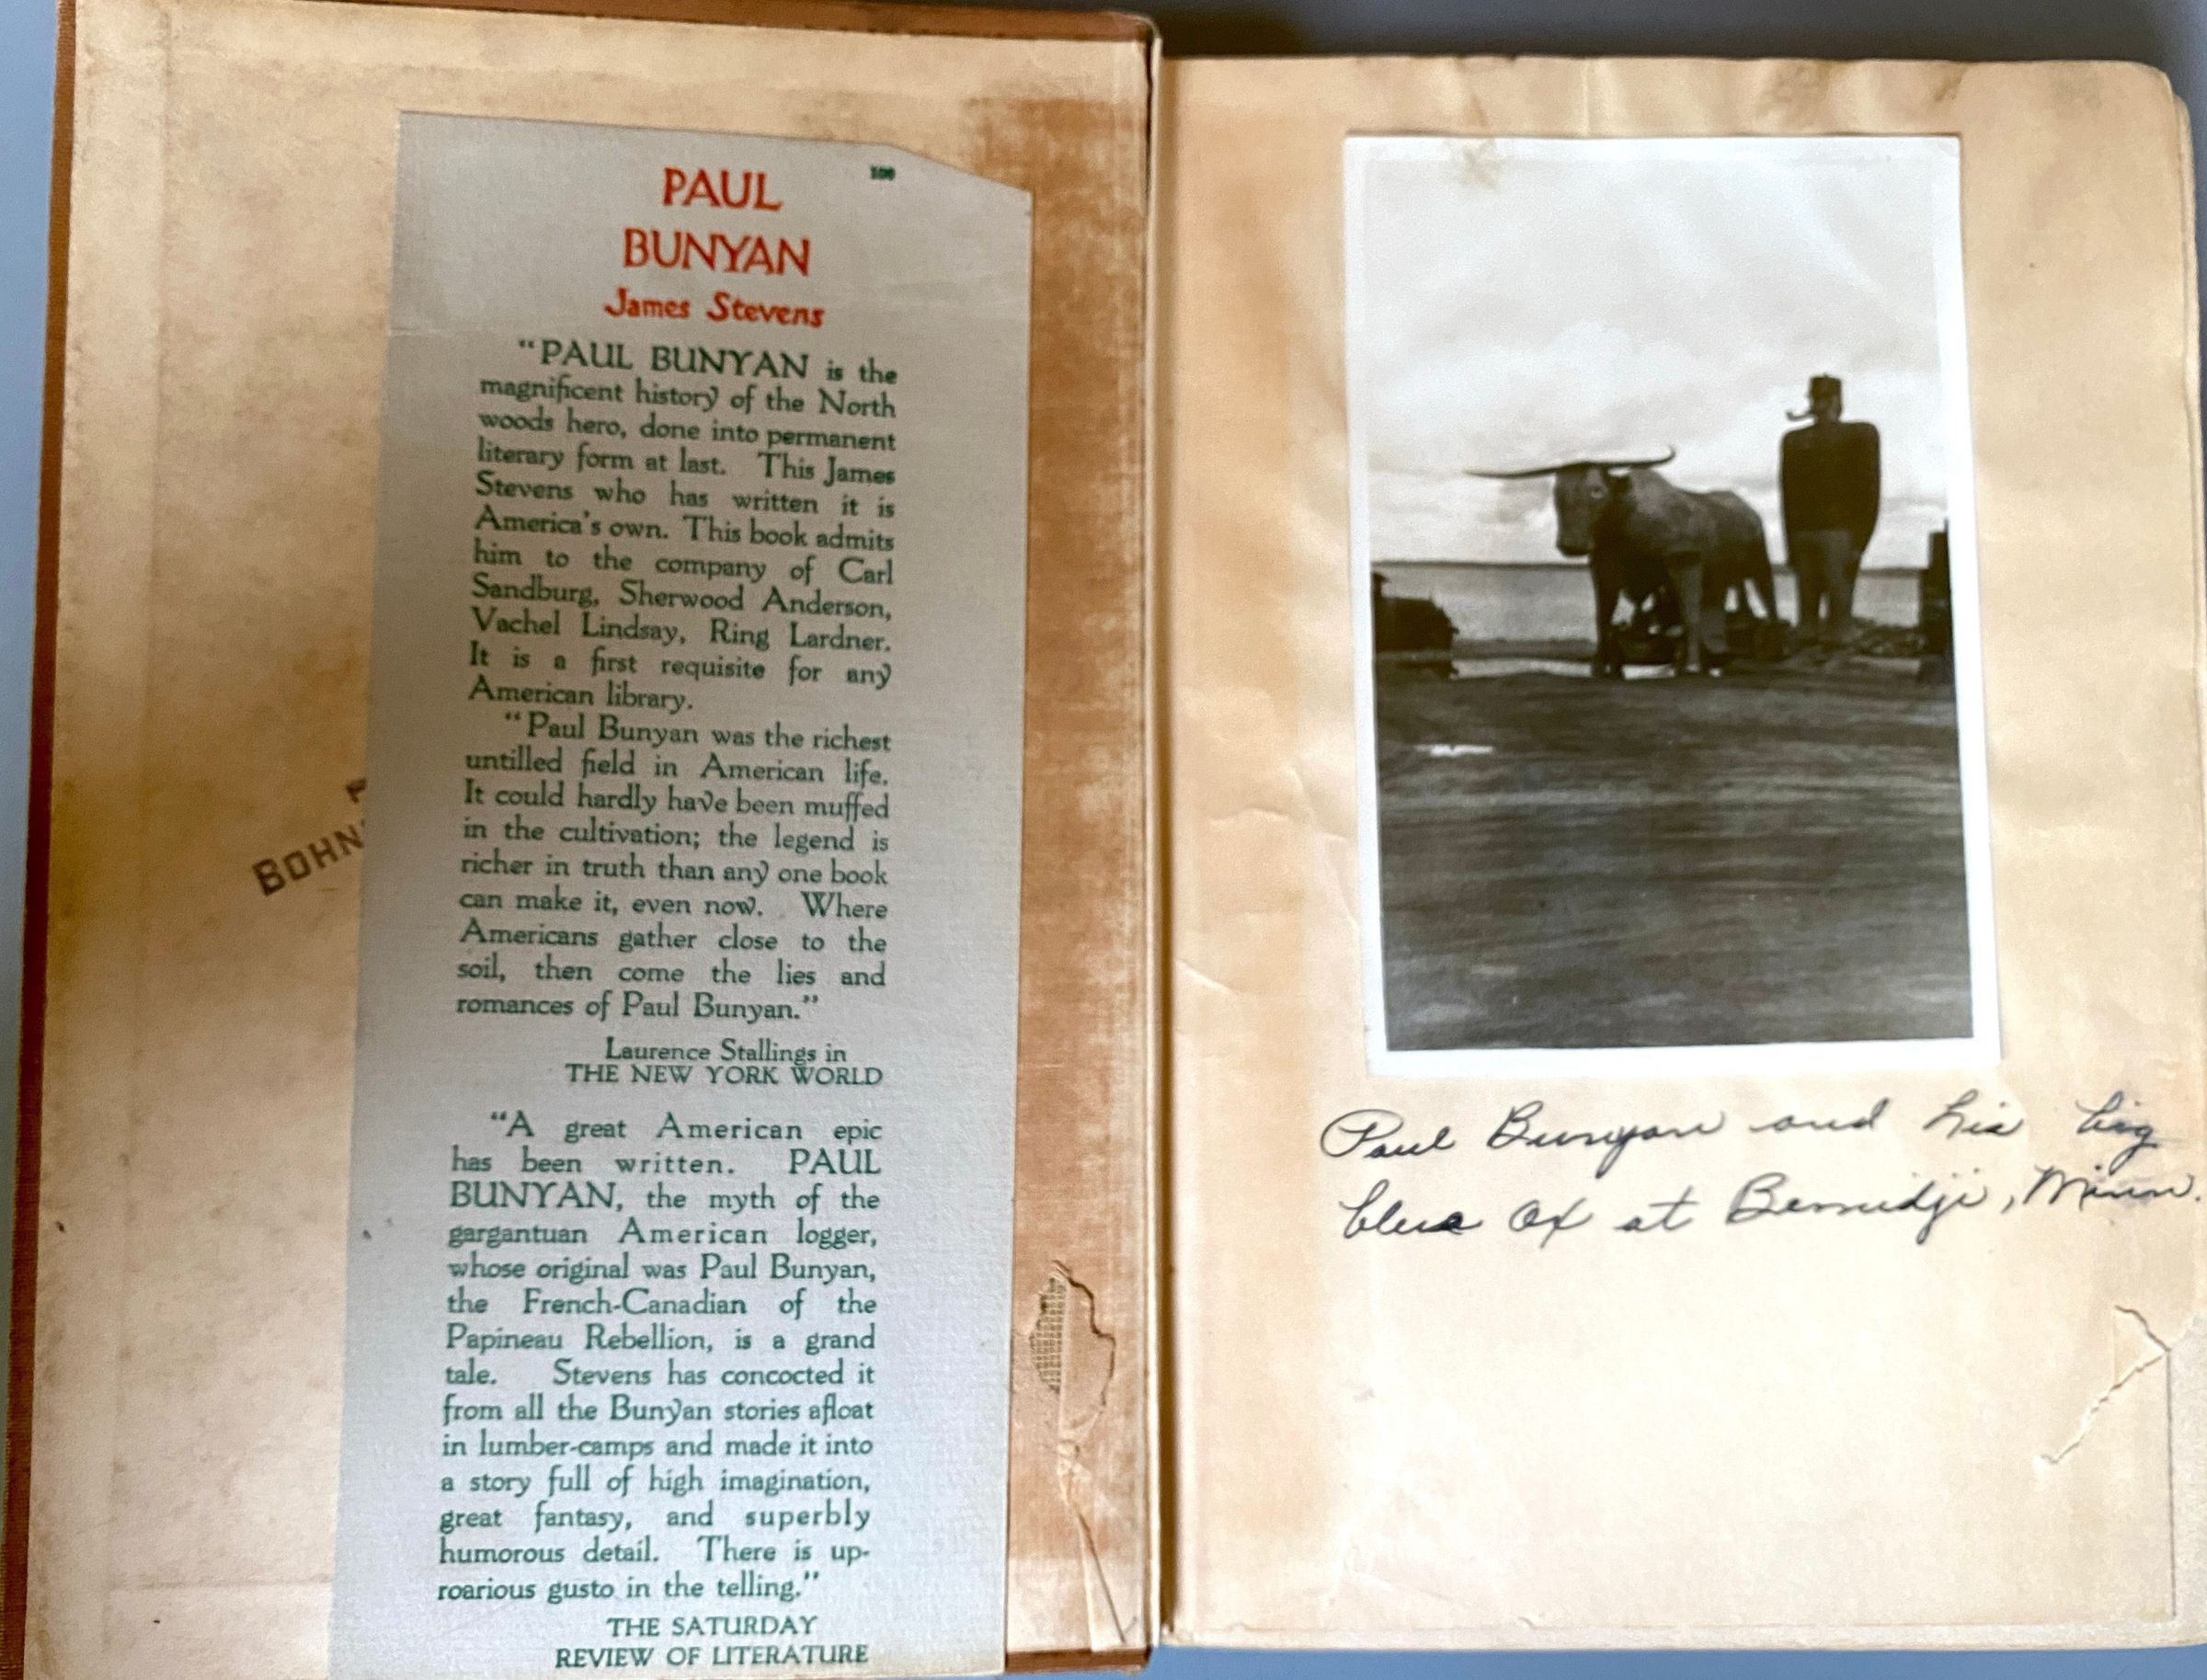 100
PAUL
BUNYAN
James Stevens
"PAUL BUNYAN is the
magnificent history of the North
woods hero, done into permanent
literary form at last. This James
Stevens who has written it is
America's own. This book admits
him to the company of Carl
Sandburg, Sherwood Anderson,
Vachel Lindsay, Ring Lardner.
It is a first requisite for any
American library.
"Paul Bunyan was the richest
untilled field in American life.
It could hardly have been muffed
in the cultivation; the legend is
richer in truth than any one book
can make it, even now. Where
Americans gather close to the
soil, then come the lies and
romances of Paul Bunyan."
Laurence Stallings in
THE NEW YORK WORLD
"A great American epic
has been written. PAUL
BUNYAN, the myth of the
gargantuan American logger,
whose original was Paul Bunyan,
the French-Canadian of the
Papineau Rebellion, is a grand
tale. Stevens has concocted it
from all the Bunyan stories afloat
in lumber-camps and made it into
a story full of high imagination,
great fantasy, and superbly
humorous detail. There is up-
roarious gusto in the telling."
THE SATURDAY
REVIEW OF LITERATURE
BOHN
Paul Bunyan and his big
blue Ox at Bemidji, Minn.